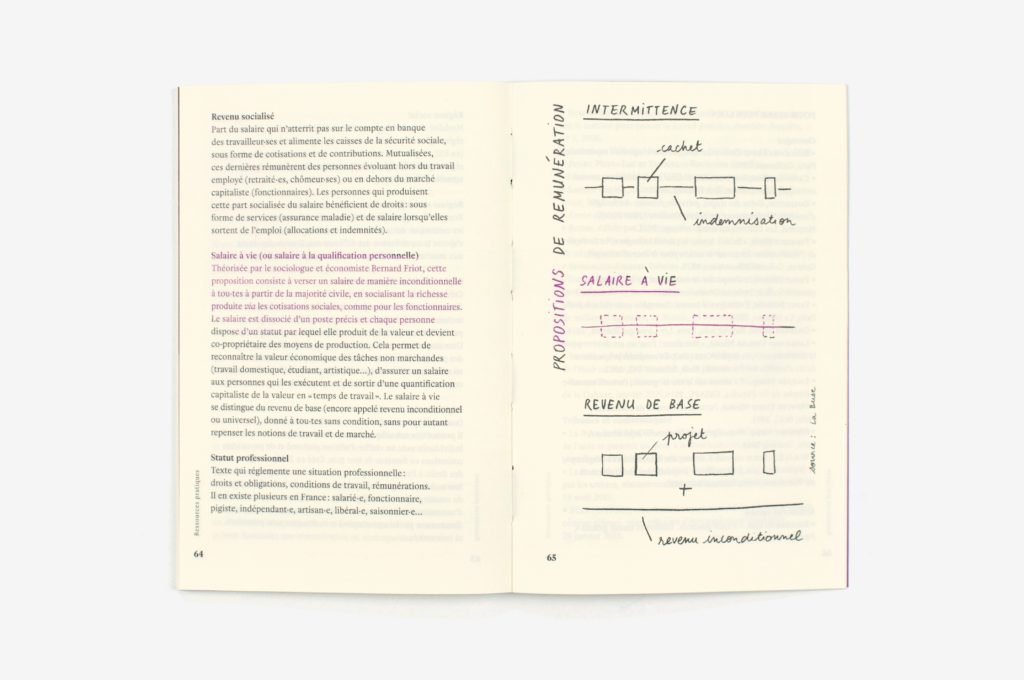 Revenu socialisé
Part du salaire qui n'atterrit pas sur le compte en banque
des travailleur·ses et alimente les caisses de la sécurité sociale,
sous forme de cotisations et de contributions. Mutualisées,
ces dernières rémunèrent des personnes évoluant hors du travail
employé (retraité·es, chômeur·ses) ou en dehors du marché
capitaliste (fonctionnaires). Les personnes qui produisent
cette part socialisée du salaire bénéficient de droits : sous
forme de services (assurance maladie) et de salaire lorsqu'elles
sortent de l'emploi (allocations et indemnités).
Salaire à vie (ou salaire à la qualification personnelle)
Théorisée par le sociologue et économiste Bernard Friot, cette
proposition consiste à verser un salaire de manière inconditionnelle
à tou·tes à partir de la majorité civile, en socialisant la richesse
produite via les cotisations sociales, comme pour les fonctionnaires.
Le salaire est dissocié d'un poste précis et chaque personne
dispose d'un statut par lequel elle produit de la valeur et devient
co-propriétaire des moyens de production. Cela permet de
reconnaître la valeur économique des tâches non marchandes
(travail domestique, étudiant, artistique…), d'assurer un salaire
aux personnes qui les exécutent et de sortir d'une quantification
capitaliste de la valeur en « temps de travail ». Le salaire à vie
se distingue du revenu de base (encore appelé revenu inconditionnel
ou universel), donné à tou·tes sans condition, sans pour autant
repenser les notions de travail et de marché.
Statut professionnel
Texte qui réglemente une situation professionnelle :
droits et obligations, conditions de travail, rémunérations.
Il en existe plusieurs en France : salarié·e, fonctionnaire,
pigiste, indépendant·e, artisan·e, libéral·e, saisonnier·e…
Ressources pratiques
64
PROPOSITIONS DE REMUNÉRATION
INTERMITTENCE
cachet
indemnisation
SALAIRE À VIE
REVENU DE BASE
projet
+
revenu inconditionnel
source : La Buse
65